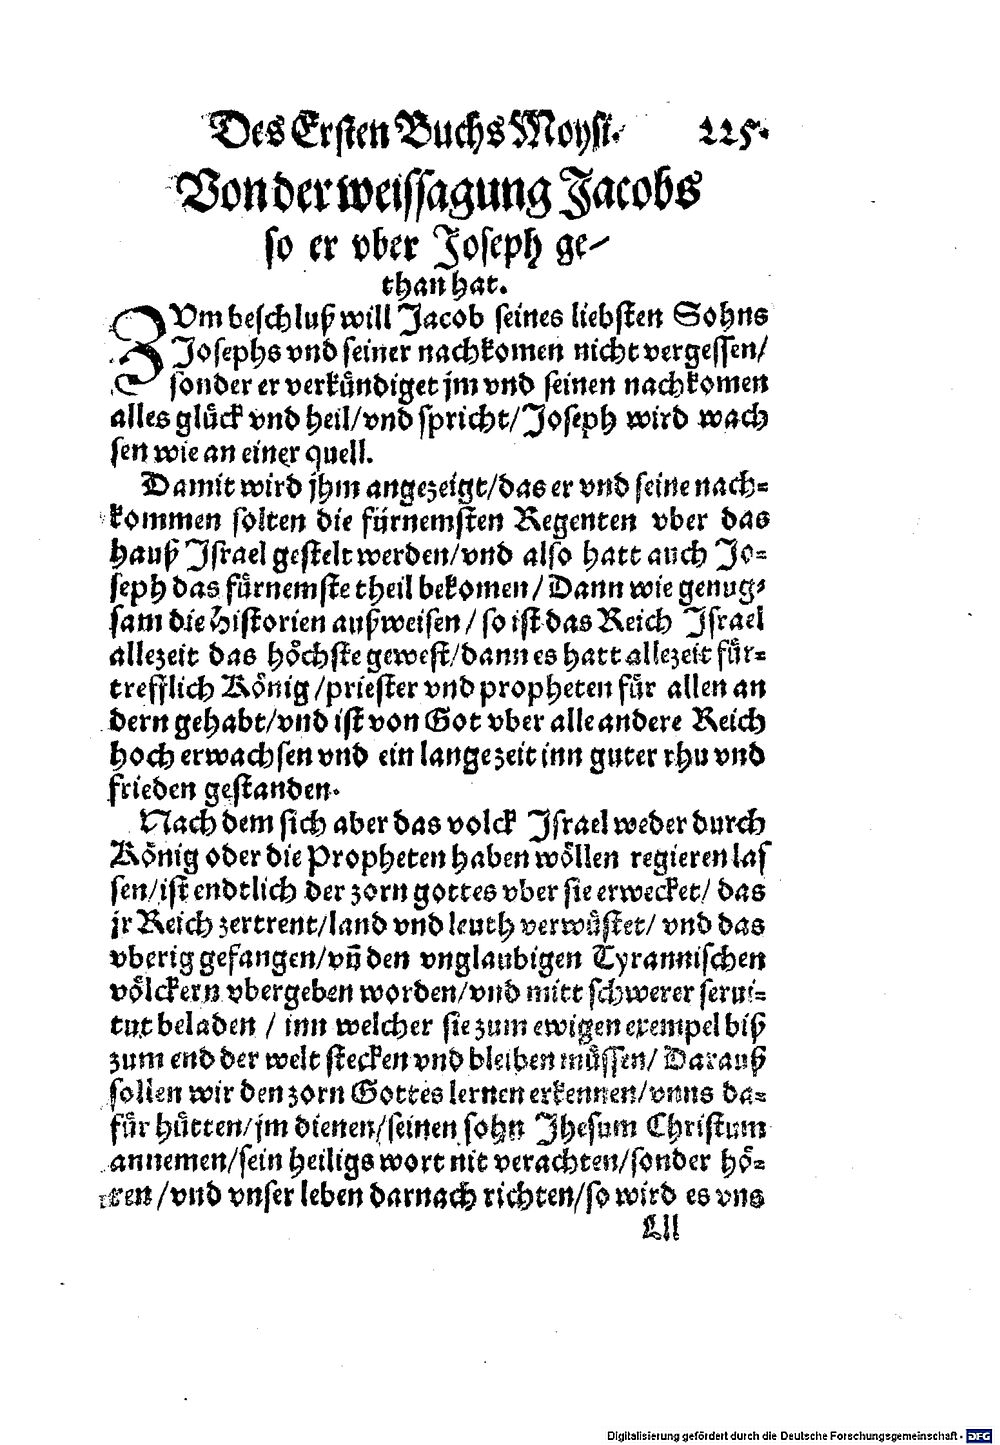 Des Ersten Buchs Moysi. 225.
Von der weissagung Jacobs
so er vber Joseph ge-
than hat.
ZVm beschluß will Jacob seines liebsten Sohns
Josephs vnd seiner nachkomen nicht vergessen/
sonder er verkündiget jm vnd seinen nachkomen
alles glück vnd heil/vnd spricht/Joseph wird wach
sen wie an einer quell.
Damit wird jhm angezeigt/das er vnd seine nach-
kommen solten die fürnemsten Regenten vber das
hauß Israel gestelt werden/vnd also hatt auch Jo-
seph das fürnemste theil bekomen/Dann wie genug-
sam die Historien außweisen/so ist das Reich Israel
allezeit das höchste gewest/dann es hatt allezeit für-
trefflich König/priester vnd propheten für allen an
dern gehabt/vnd ist von Got vber alle andere Reich
hoch erwachsen vnd ein lange zeit inn guter rhu vnd
frieden gestanden.
Nach dem sich aber das volck Israel weder durch
König oder die Propheten haben wöllen regieren las
sen/ist endtlich der zorn gottes vber sie erwecket/das
jr Reich zertrent/land vnd leuth verwüstet/vnd das
vberig gefangen/vn̄ den vnglaubigen Tyrannischen
völckern vbergeben worden/vnd mitt schwerer serui-
tut beladen/inn welcher sie zum ewigen exempel biß
zum end der welt stecken vnd bleiben müssen/Darauß
sollen wir den zorn Gottes lernen erkennen/vnns da-
für hütten/jm dienen/seinen sohn Jhesum Christum
annemen/sein heiligs wort nit verachten/sonder hö-
ren/vnd vnser leben darnach richten/so wird es vns
Lll
Digitalisierung gefördert durch die Deutsche Forschungsgemeinschaft - DFG